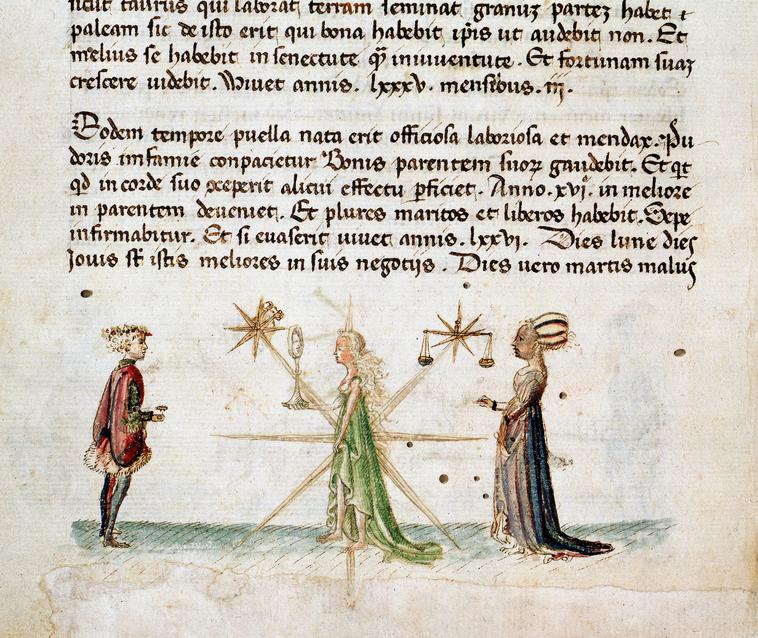 sicut taurus qui laborat terram seminat granuz partez habet et
paleam sic de isto erit qui bona habebit ipis ut audebit non. Et
melius se habebit in senectute q̃ iniuventute. Et fortunam suaz
crescere videbit. Vivet annis. lxxxv. mensibus. iij.
Eodem tempore puella nata erit officiosa laboriosa et mendax. Pu
doris infamie conpacietur Bonis parentem suorz gaudebit. Et
qd in corde suo ceperit alicui effectu pficiet. Anno. xvi. in meliore
in parentem deveniet. Et plures maritos et liberos habebit. Sepe
infirmabitur. Et si evaserit vivet annis. lxxvi. Dies lune dies
Jovis st istis meliores in suis negotijs. Dies vero martis malus